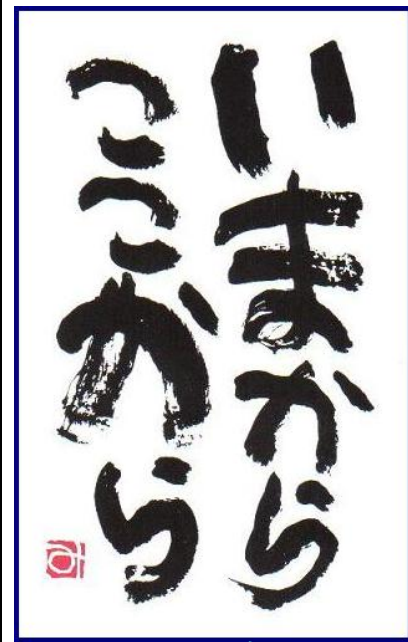 いまから
ここから
み